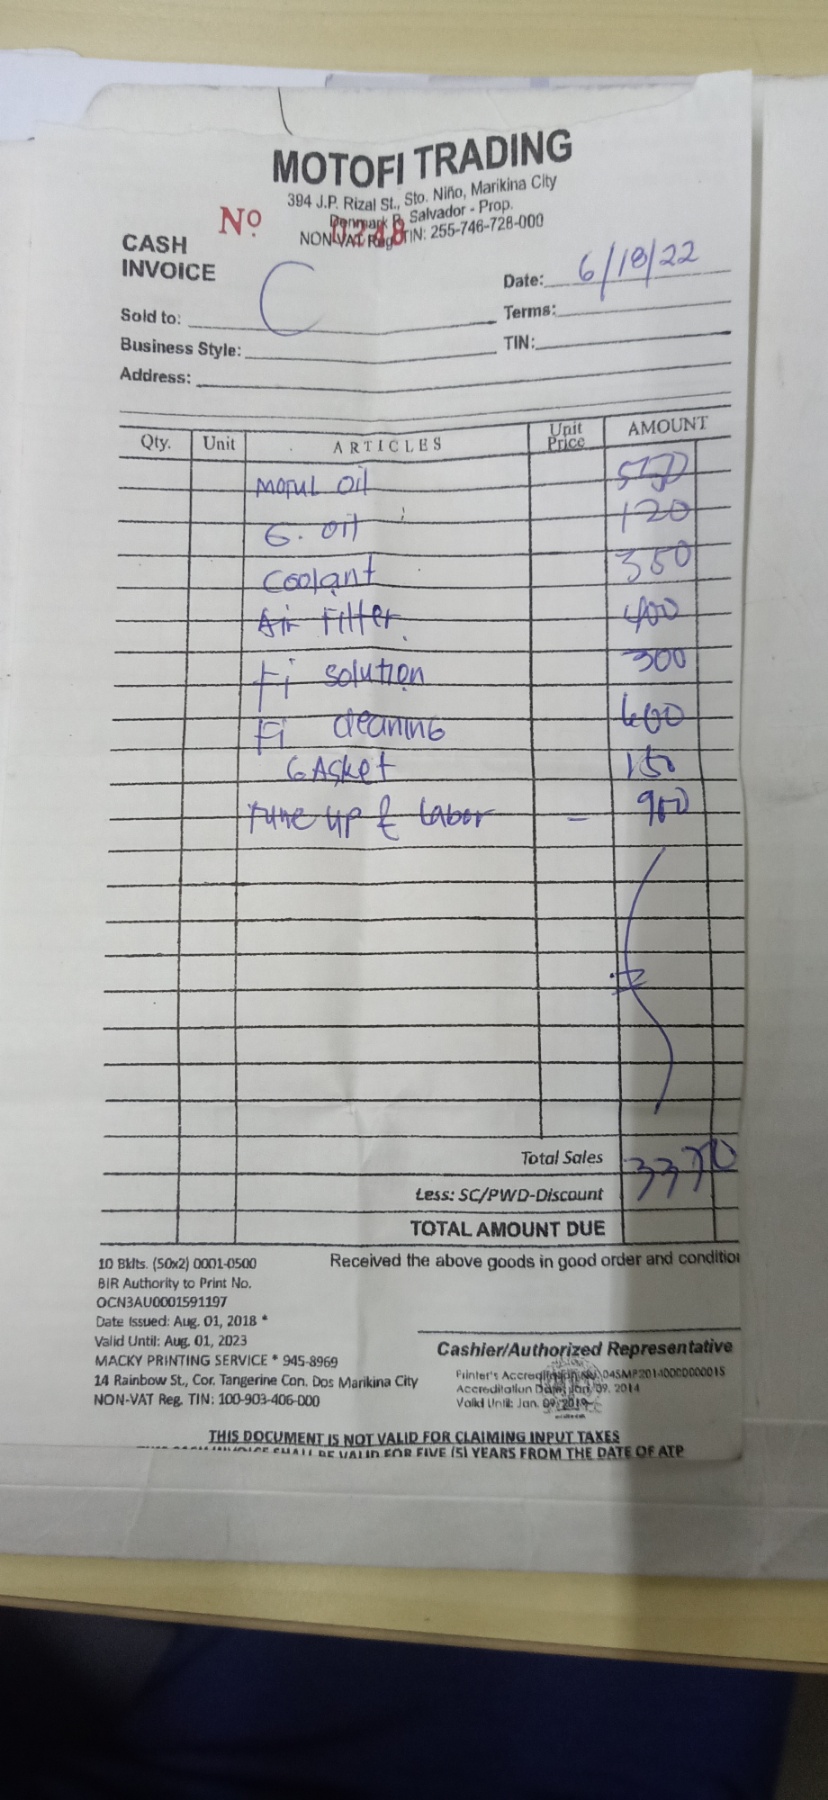 MOTOFI TRADING
394 J.P. Rizal St., Sto. Niño, Marikina City
Denmark P. Salvador - Prop.
NON-VAT Reg. TIN: 255-746-728-000
Nº 0248
CASH
INVOICE
Date: 6/18/22
Sold to: C
Terms:
Business Style:
TIN:
Address:
Qty. Unit ARTICLES Unit Price AMOUNT
Motul Oil 550
G. Oil 120
Coolant 350
Air Filter 400
Fi solution 300
Fi cleaning 600
GAsket 150
Tune up & Labor - 900
Total Sales 3370
Less: SC/PWD-Discount
TOTAL AMOUNT DUE
10 Bklts. (50x2) 0001-0500
Received the above goods in good order and condition
BIR Authority to Print No.
OCN3AU0001591197
Date Issued: Aug. 01, 2018 *
Valid Until: Aug. 01, 2023
MACKY PRINTING SERVICE * 945-8969
14 Rainbow St., Cor. Tangerine Con. Dos Marikina City
NON-VAT Reg. TIN: 100-903-406-000
Cashier/Authorized Representative
Printer's Accreditation No. 045MP20140000000015
Accreditation Date: Jan. 09. 2014
Valid Until: Jan. 09, 2019
THIS DOCUMENT IS NOT VALID FOR CLAIMING INPUT TAXES
THIS CASH INVOICE SHALL BE VALID FOR FIVE (5) YEARS FROM THE DATE OF ATP